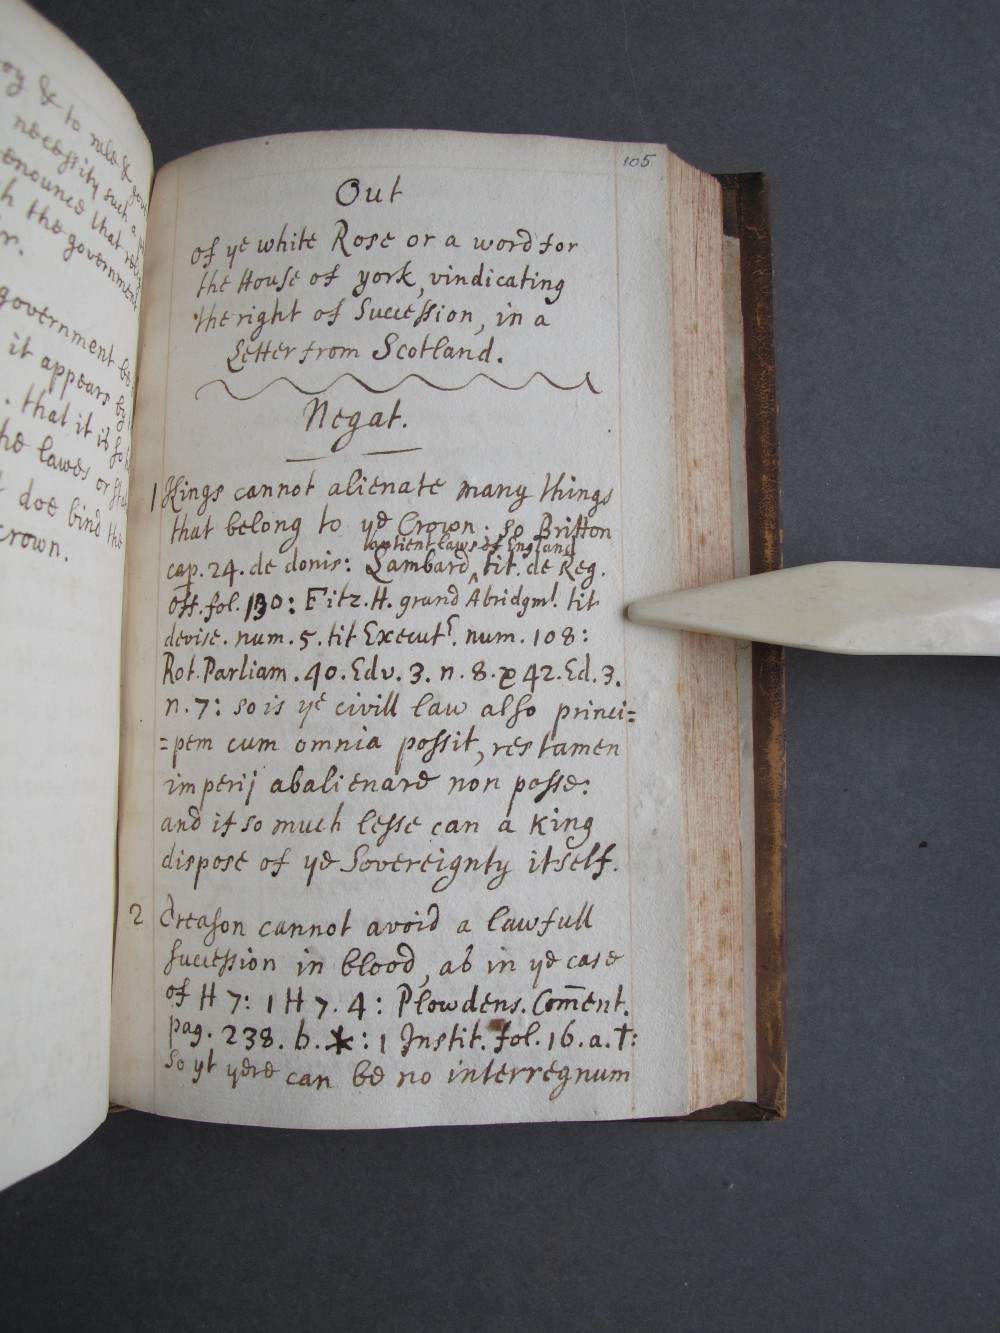 oy & to rule & gov
necessity such a p
enounced that relig
h the government
r.
government be
it appears by
. that it is so
he lawes or sta
t doe bind the
crown.
105
Out
of ye white Rose or a word for
the House of york, vindicating
the right of Succession, in a
Letter from Scotland.
Negat.
1 Kings cannot alienate many things
that belong to ye Crown: so Britton
antient laws of England
cap. 24. de donis: Lambard ‸ tit. de Reg.
Off. fol. 130: Fitz. H. grand Abridgmt. tit
devise. num. 5. tit Executr. num. 108:
Rot. Parliam. 40. Edv. 3. n. 8. & 42. Ed. 3.
n. 7: so is ye civill law also princi=
=pem cum omnia possit, res tamen
imperij abalienare non posse:
and if so much lesse can a King
dispose of ye Sovereignty itself.
2 Treason cannot avoid a lawfull
succession in blood, as in ye case
of H 7: 1 H 7. 4: Plowdens. Com̄ent.
pag. 238. b. *: 1 Instit. fol. 16. a. †:
so yt yere can be no interregnum